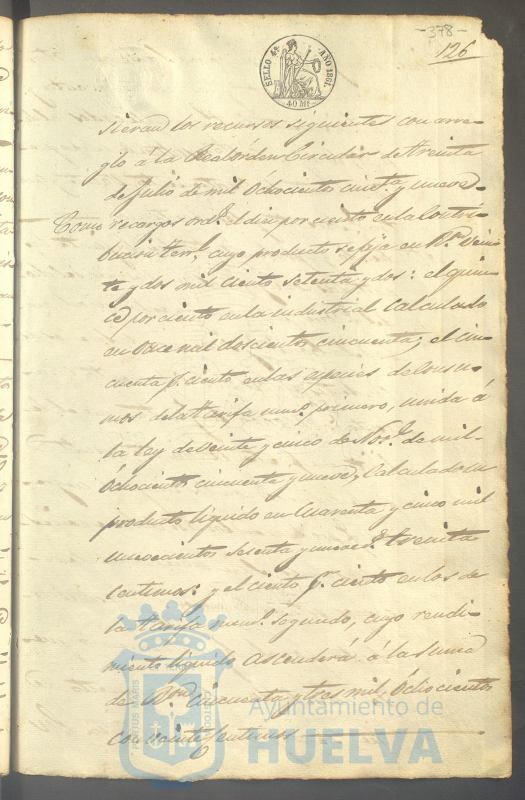 -378-
126
SELLO 4º AÑO 1861.
40 Ms
sieran los recursos siguientes con arre-
glo á la Real órden Circular de treinta
de Julio de mil Ochociento cincta y nueve
Como recargos ords el diez por ciento en la Contri-
bucion terrl cuyo producto se fija en Rs Vein-
te y dos mil ciento setenta y dos: el quin-
ce por ciento en la industrial Calculado
en Once mil doscientos cincuenta; el cin-
cuenta p. ciento en las especies de Consu-
mos de la tarifa numo primero, unida á
la ley de Veinte y cinco de Nove de mil
Ochocientos cincuenta y nueve, Calculado su
producto líquido en Cuarenta y cinco mil
nuevecientos sesenta y nueve rs treinta
Centimos: y el ciento p. ciento en los de
la tarifa numo segundo, cuyo rendi-
miento líquido ascenderá á la suma
de Rvon Cincuenta y tres mil, Ochocientos
con veinte Centimos
PORTUS MARIS
CUSTODIA
Ayuntamiento de
HUELVA